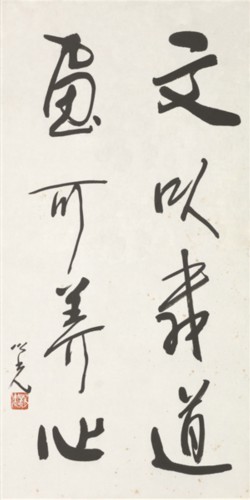 文以载道
画可养心